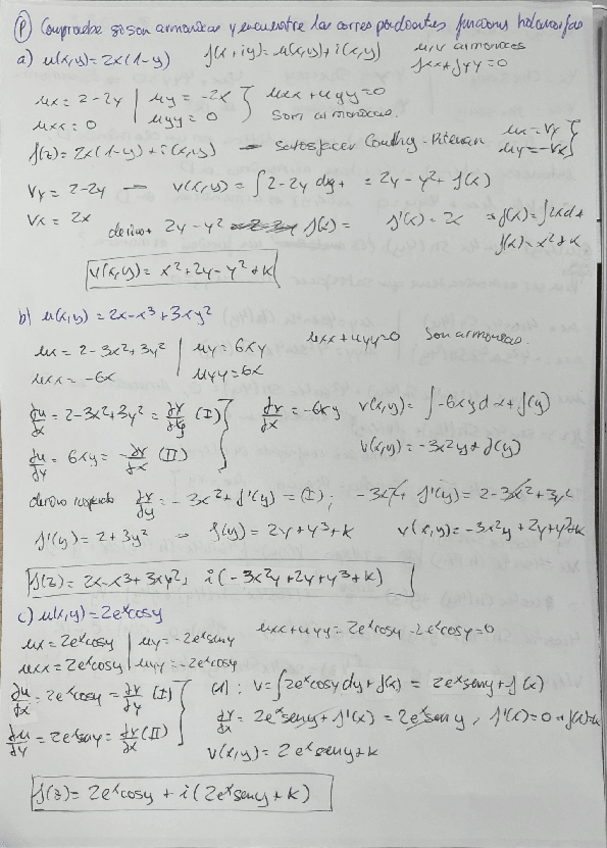 (P) Compruebe si son armonicas y encuentre las correspondientes funciones holomorfas
a) u(x,y)=2x(1-y) f(x+iy)=u(x,y)+i(x,y) u,v armonicas
fxx+fyy=0
ux=2-2y | uy=-2x } uxx+uyy=0
uxx=0 | uyy=0 Son armonicas.
f(z)=2x(1-y)+i(x,y) → satisfacer Cauchy-Rieman ux=vy }
uy=-vx
vy=2-2y → v(x,y)=∫2-2y dy+ = 2y-y²+f(x)
vx=2x derivo+ 2y-y² f(x)= f'(x)=2x ⇒ f(x)=∫2xdx
f(x)=x²+K
v(x,y)=x²+2y-y²+k
b) u(x,y)=2x-x³+3xy²
ux=2-3x²+3y² | uy=6xy uxx+uyy=0 Son armonicas.
uxx=-6x | uyy=6x
∂u/∂x=2-3x²+3y²=∂v/∂y (I) } ∂v/∂x=-6xy v(x,y)=∫-6xydx+f(y)
∂u/∂y=6xy=-∂v/∂x (II) v(x,y)=-3x²y+f(y)
derivo respecto ∂v/∂y=-3x²+f'(y)=(I); -3x²+f'(y)=2-3x²+3y²
f'(y)=2+3y² → f(y)=2y+y³+k v(x,y)=-3x²y+2y+y³+k
f(z)=2x-x³+3xy², i(-3x²y+2y+y³+k)
c) u(x,y)=2eˣcosy
ux=2eˣcosy | uy=-2eˣseny uxx+uyy=2eˣcosy-2eˣcosy=0
uxx=2eˣcosy | uyy=-2eˣcosy
∂u/∂x=2eˣcosy=∂v/∂y (I) } (I): v=∫2eˣcosydy+f(x)=2eˣseny+f(x)
∂u/∂y=2eˣseny=∂v/∂x (II) ∂v/∂x=2eˣseny+f'(x)=2eˣseny, f'(x)=0→f(x)=k
v(x,y)=2eˣseny+k
f(z)=2eˣcosy+i(2eˣseny+k)